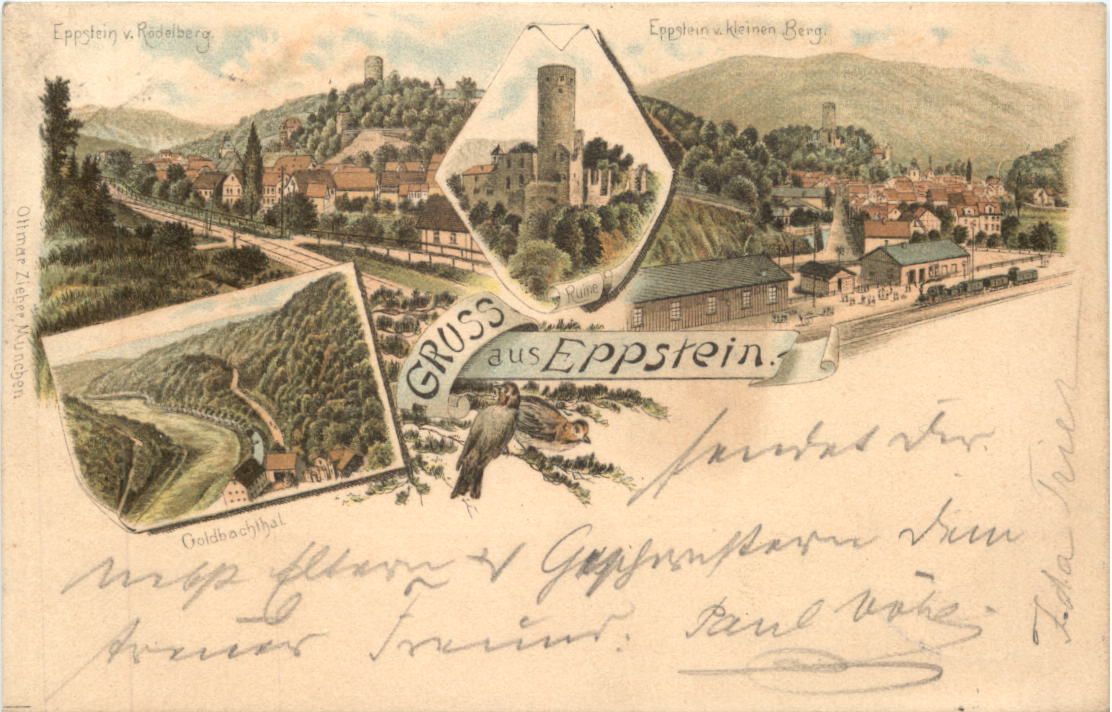 Eppstein v. Rödelberg.
Eppstein v. kleinen Berg.
Ruine
GRUSS
aus EPPSTEIN.
Goldbachthal.
Ottmar Zieher, München.
sendet Dir
nebst Eltern & Geschwistern Dein
treuer Freund.
Paul
Ida Trier